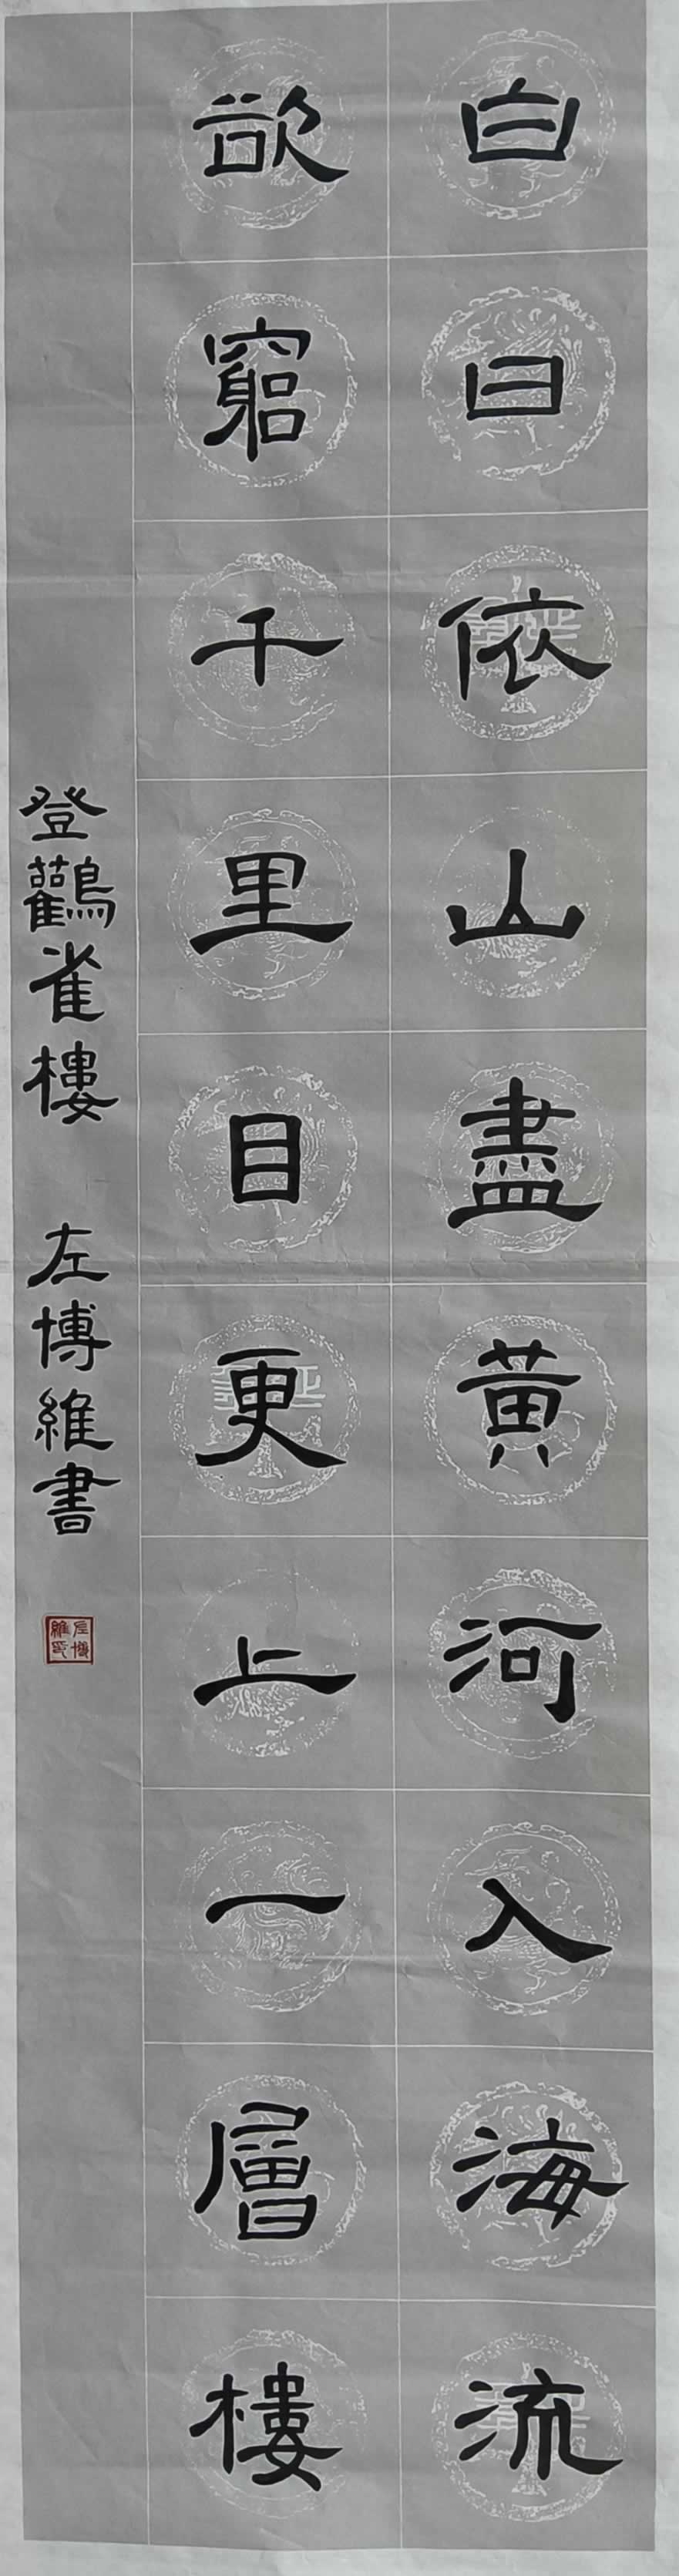 白日依山盡黃河入海流
欲窮千里目更上一層樓
登鸛雀樓 左博維書
左博維印